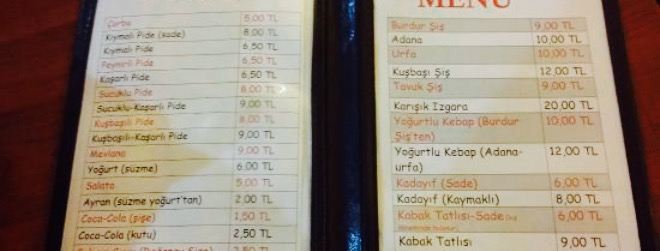 Çorba 5,00 TL
Kıymalı Pide (sade) 8,00 TL
Kıymalı Pide 6,50 TL
Peynirli Pide 6,50 TL
Kaşarlı Pide 6,50 TL
Sucuklu Pide 8,00 TL
Sucuklu-Kaşarlı Pide 9,00 TL
Kuşbaşılı Pide 8,00 TL
Kuşbaşılı-Kaşarlı Pide 9,00 TL
Mevlana 9,00 TL
Yoğurt (süzme) 6,00 TL
Salata 5,00 TL
Ayran (süzme yoğurt'tan) 2,00 TL
Coca-Cola (şişe) 1,50 TL
Coca-Cola (kutu) 2,50 TL
2,50 TL
MENÜ
Burdur Şiş 9,00 TL
Adana 10,00 TL
Urfa 10,00 TL
Kuşbaşı Şiş 12,00 TL
Tavuk Şiş 9,00 TL
Karışık Izgara 20,00 TL
Yoğurtlu Kebap (Burdur 10,00 TL
Şiş'ten)
Yoğurtlu Kebap (Adana- 12,00 TL
urfa)
Kadayıf (Sade) 6,00 TL
Kadayıf (Kaymaklı) 8,00 TL
Kabak Tatlısı-Sade 6,00 TL
Kabak Tatlısı 9,00 TL